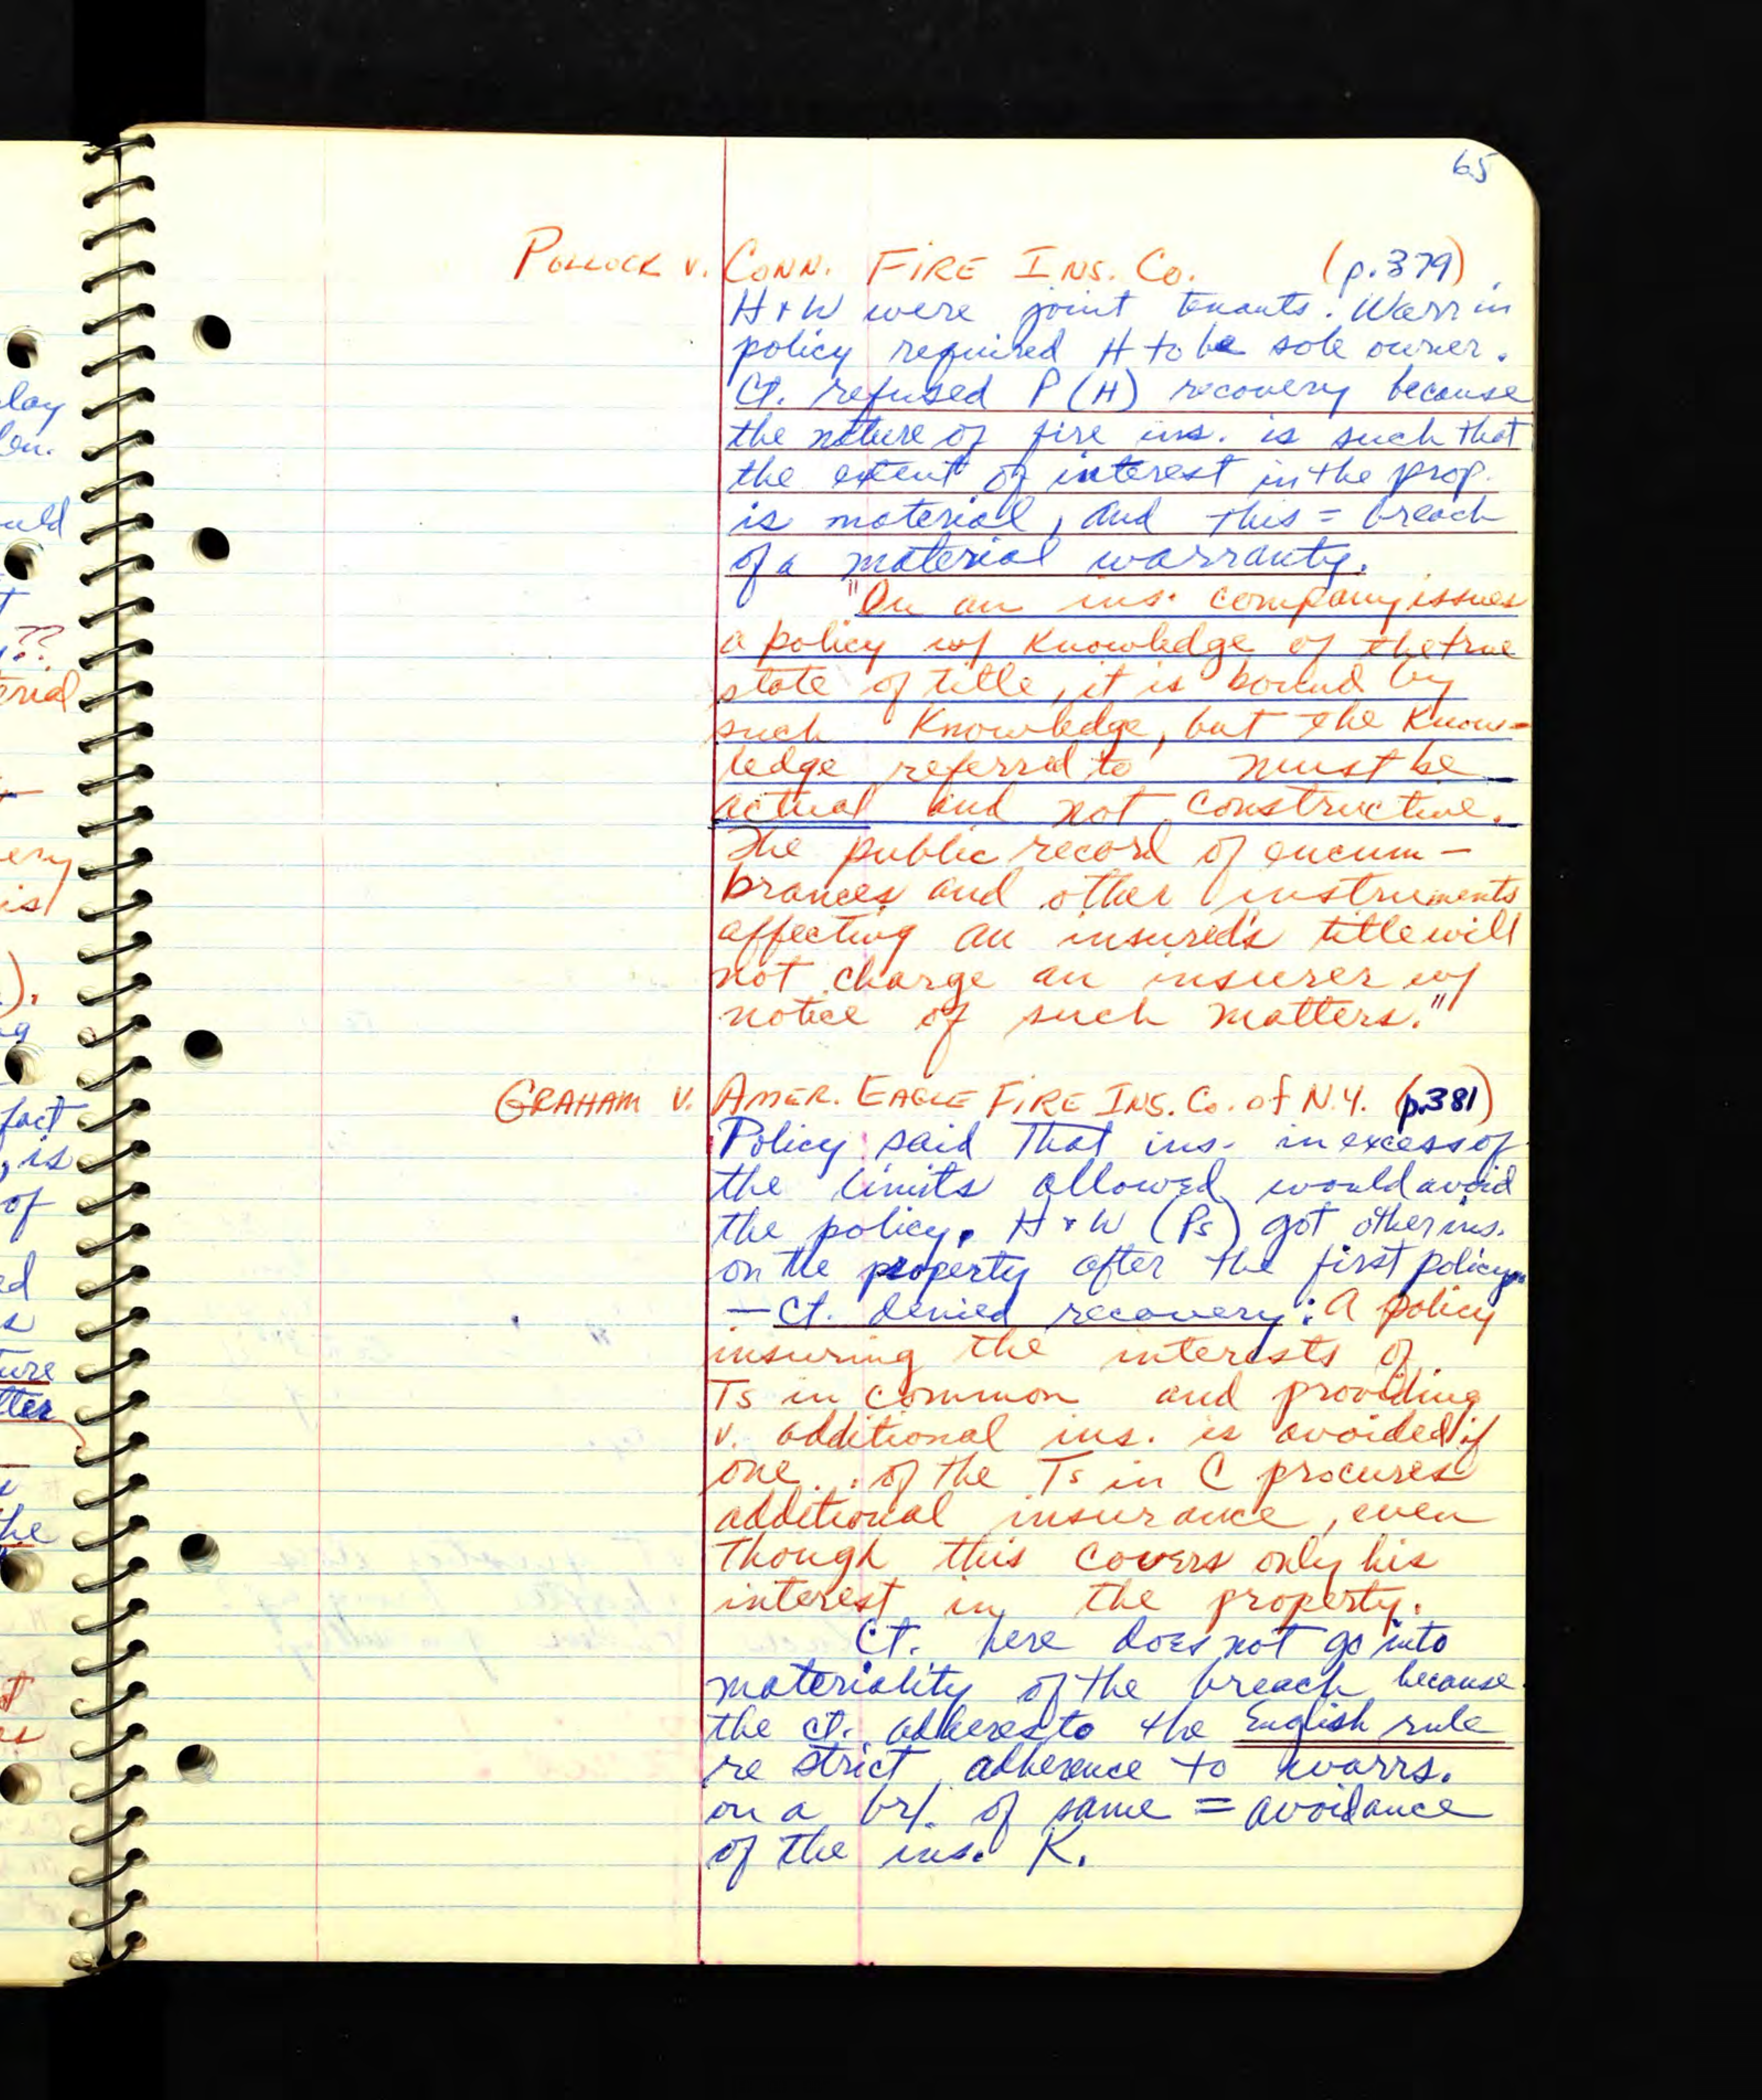 65
POLLOCK v. CONN. FIRE INS. CO. (p.379)
H + W were joint tenants. Warr in
policy required H to be sole owner.
Ct. refused P (H) recovery because
the nature of fire ins. is such that
the extent of interest in the prop.
is material, and this = breach
of a material warranty.
"On an ins. company issues
a policy w/ knowledge of the true
state of title, it is bound by
such knowledge, but the know-
ledge referred to must be
actual and not constructive.
The public record of encum-
brances and other instruments
affecting an insured's title will
not charge an insurer w/
notice of such matters."
GRAHAM v. AMER. EAGLE FIRE INS. Co. of N.Y. (p.381)
Policy said that ins. in excess of
the limits allowed would avoid
the policy. H + W (Ps) got other ins.
on the property after the first policy.
— Ct. denied recovery: A policy
insuring the interests of
Ts in common and providing
v. additional ins. is avoided if
one . . of the Ts in C procures
additional insurance, even
though this covers only his
interest in the property.
Ct. here does not go into
materiality of the breach because
the ct. adheres to the English rule
re strict adherence to warrs.
on a br/. of same = avoidance
of the ins. K.
lay
uld
??
erial
ery
is
).
fact
, is
of
ed
ure
tter
he